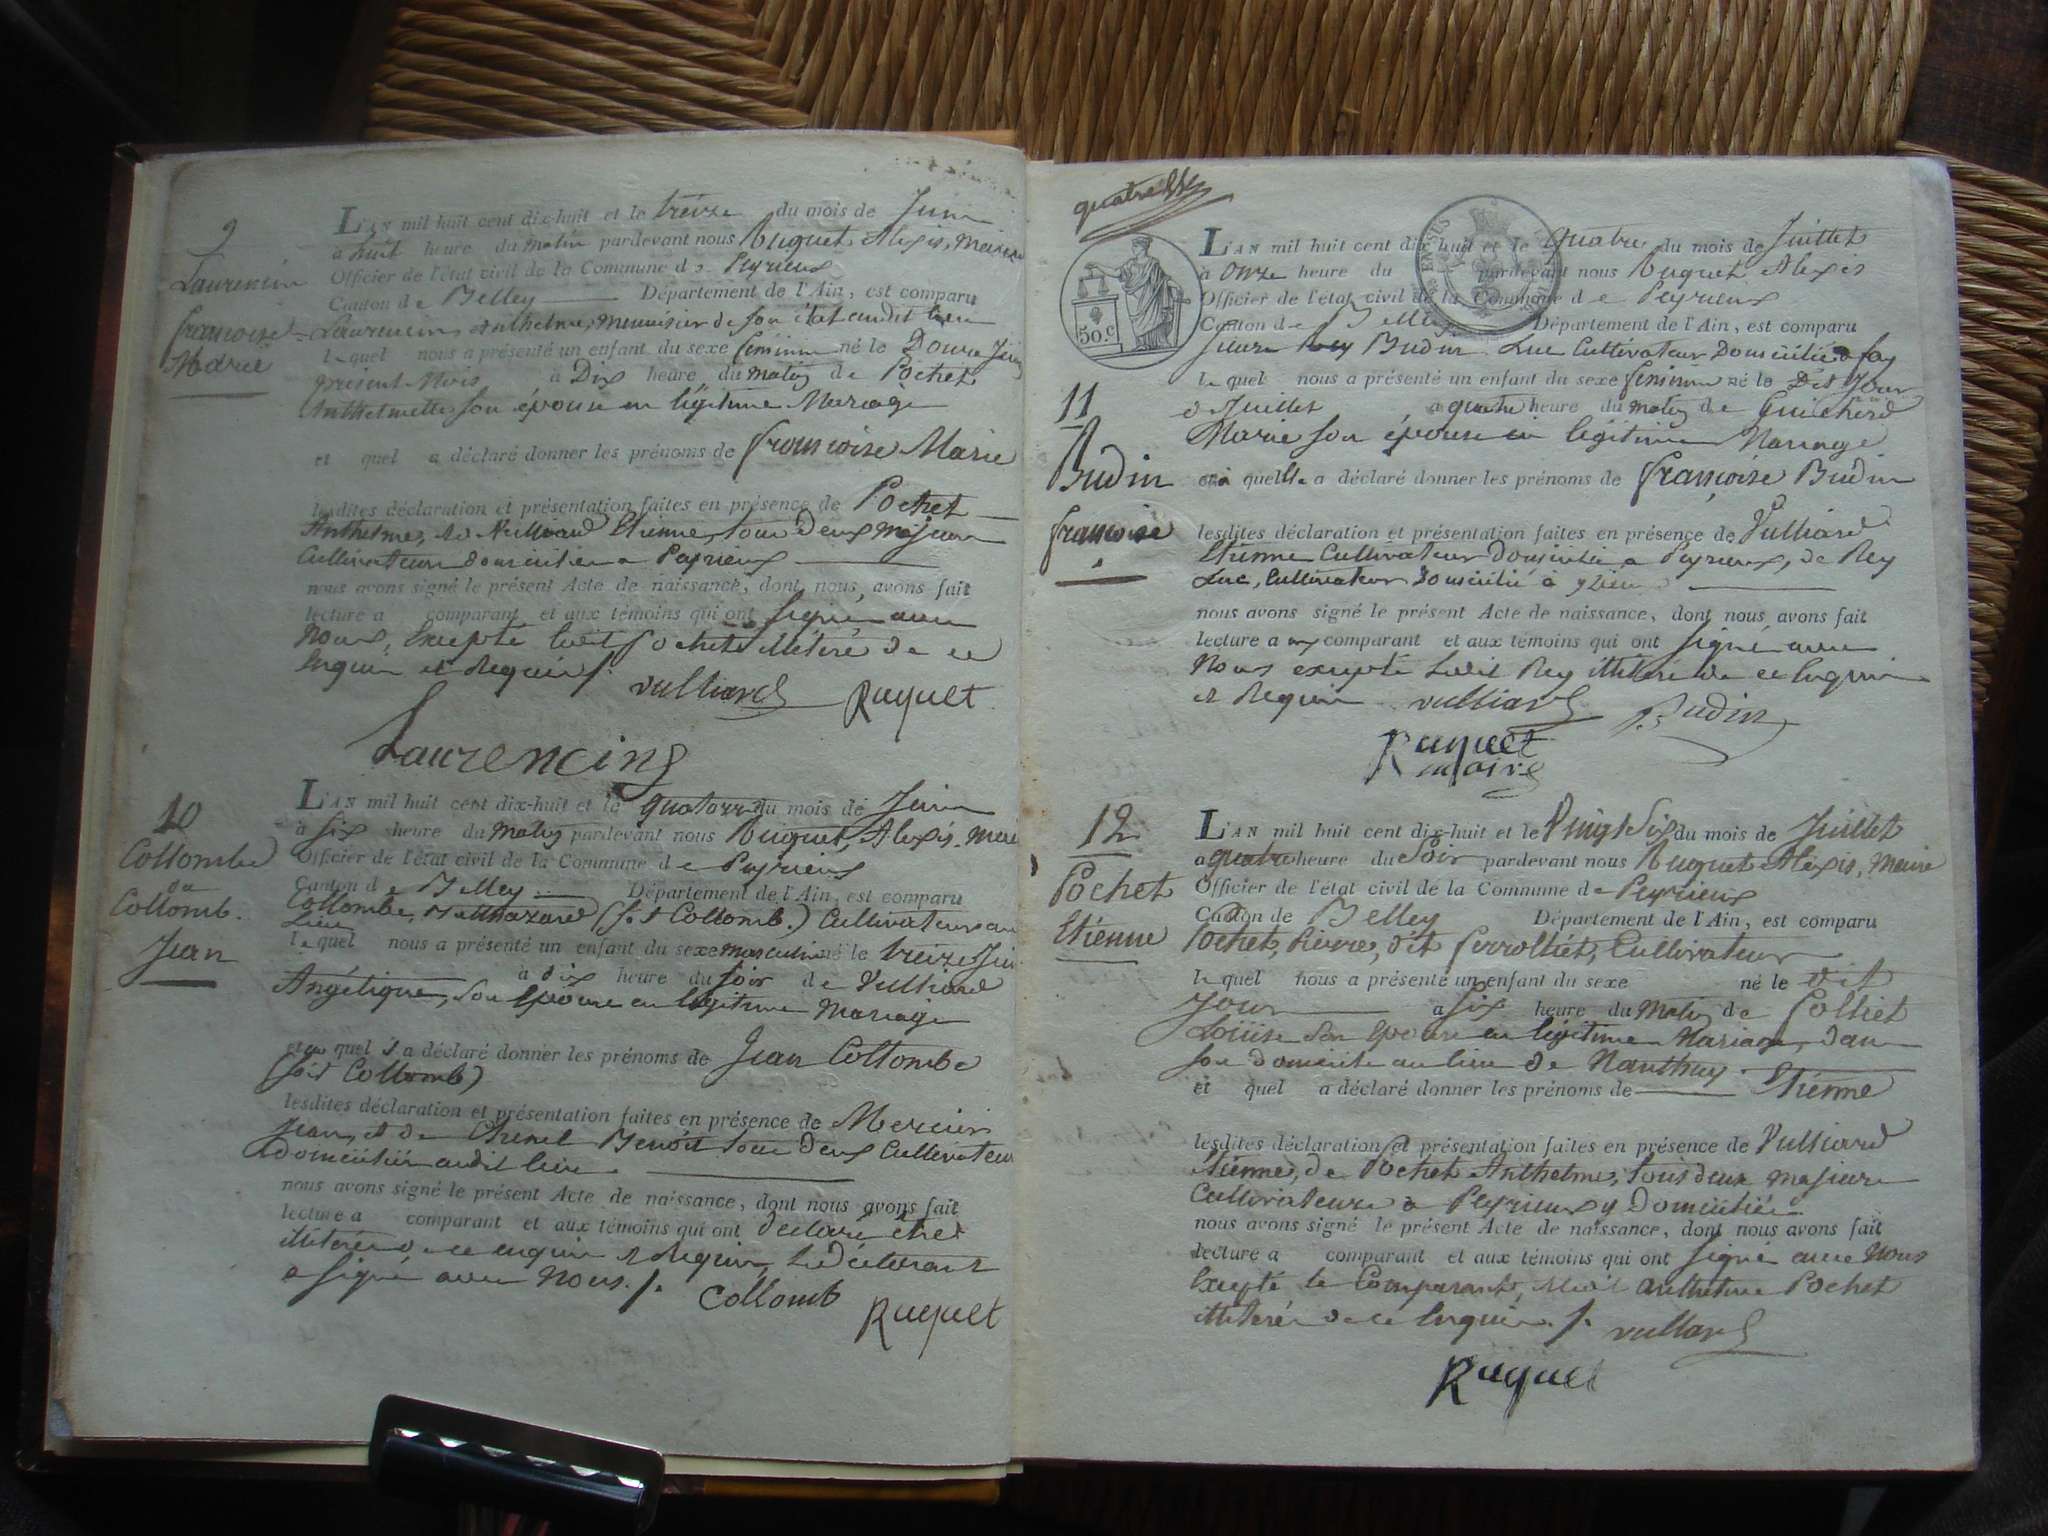 9
Laurencin
françoise
Marie
L'AN mil huit cent dix-huit et le treize du mois de Juin
à huit heure du matin pardevant nous Ruquet Alexis, Maire
Officier de l'état civil de la Commune de Peyrieux
Canton de Belley Département de l'Ain, est comparu
Laurencin Anthelme, menuisier de son état audit lieu
lequel nous a présenté un enfant du sexe feminin né le Douze Juin
present Mois à Dix heure du matin de Pochet
Anthelmette son épouse en légitime Mariage
et quel a déclaré donner les prénoms de françoise Marie
lesdites déclaration et présentation faites en présence de Pochet
Anthelme, de Vulliard Etienne, tous deux majeurs
Cultivateurs domiciliés a Peyrieux
nous avons signé le présent Acte de naissance, dont nous avons fait
lecture a comparant et aux témoins qui ont signé avec
Nous, Excepté ledit Pochet illiteré de ce
Enquis et Requis /.
vulliard Ruquet
Laurencing
10
Collombe
ou
Collomb.
Jean
L'AN mil huit cent dix-huit et le quatorze du mois de Juin
à six heure du matin pardevant nous Ruquet, Alexis, maire
Officier de l'état civil de la Commune de Peyrieux
Canton de Belley Département de l'Ain, est comparu
Collombe, Balthazard (soit Collomb.) Cultivateur au
Lieu
lequel nous a présenté un enfant du sexe masculin né le treize Juin
à dix heure du soir de Vulliard
Angélique, son Epouse en légitime Mariage
quel a déclaré donner les prénoms de Jean Collombe
(soit Collomb)
lesdites déclaration et présentation faites en présence de Mercier
Jean, et de Benoît tous deux Cultivateurs
Domiciliés audit lieu
nous avons signé le présent Acte de naissance, dont nous avons fait
lecture a comparant et aux témoins qui ont declaré être
illiterés de ce enquis et Requis, Le Déclarant
a signé avec Nous. /.
Collomb Ruquet
50.c
11
Budin
françoise
L'AN mil huit cent dix-huit et le quatre du mois de Juillet
à onze heure du pardevant nous Ruquet Alexis
Officier de l'état civil de la Commune de Peyrieux
Canton de Belley Département de l'Ain, est comparu
Budin Luc Cultivateur Domicilié a fay
lequel nous a présenté un enfant du sexe feminin né le Dit Jour
Juillet à quatre heure du matin de Guicherd
Marie son épouse en légitime Mariage
à quelle a déclaré donner les prénoms de françoise Budin
lesdites déclaration et présentation faites en présence de Vulliard
Etienne Cultivateur Domicilié a Peyrieux, de Rey
Luc, Cultivateur Domicilié à
nous avons signé le présent Acte de naissance, dont nous avons fait
lecture a comparant et aux témoins qui ont signé avec
Nous excepté Ledit Rey illiteré de ce Enquis
et Requis vulliard Budin
Ruquet
maire
12
Pochet
Etiénne
L'AN mil huit cent dix-huit et le Vingt Six du mois de Juillet
a quatre heure du Soir pardevant nous Ruquet Alexis, Maire
Officier de l'état civil de la Commune de Peyrieux
Canton de Belley Département de l'Ain, est comparu
Pochet, Pierre, dit Cultivateur
lequel nous a présenté un enfant du sexe né le dit
Jour à Six heure du Matin de Colliet
Loüise Son Epouse en légitime Mariage, dans
son domicile au lieu de Nanthuy
et quel a déclaré donner les prénoms de Etiénne
lesdites déclaration et présentation faites en présence de Vulliard
Etiénne, de Pochet Anthelme, tous deux majeurs
Cultivateurs a Peyrieux y Domiciliés
nous avons signé le présent Acte de naissance, dont nous avons fait
lecture a comparant et aux témoins qui ont signé avec Nous
Excepté le Comparant, Anthelme Pochet
illiterés de ce Enquis. /. vulliard
Ruquet